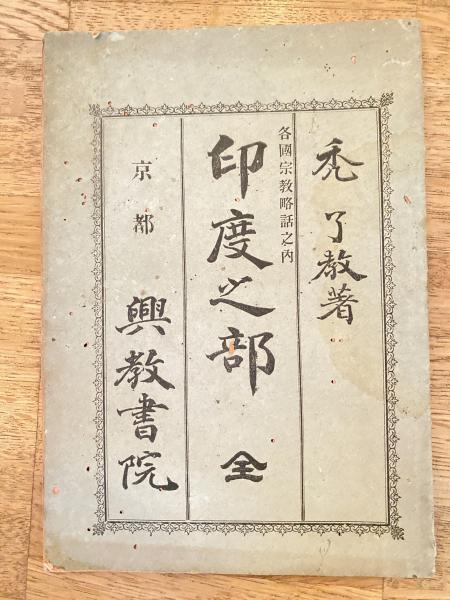 禿了教著
各國宗教略話之內
印度之部 全
京都 興教書院